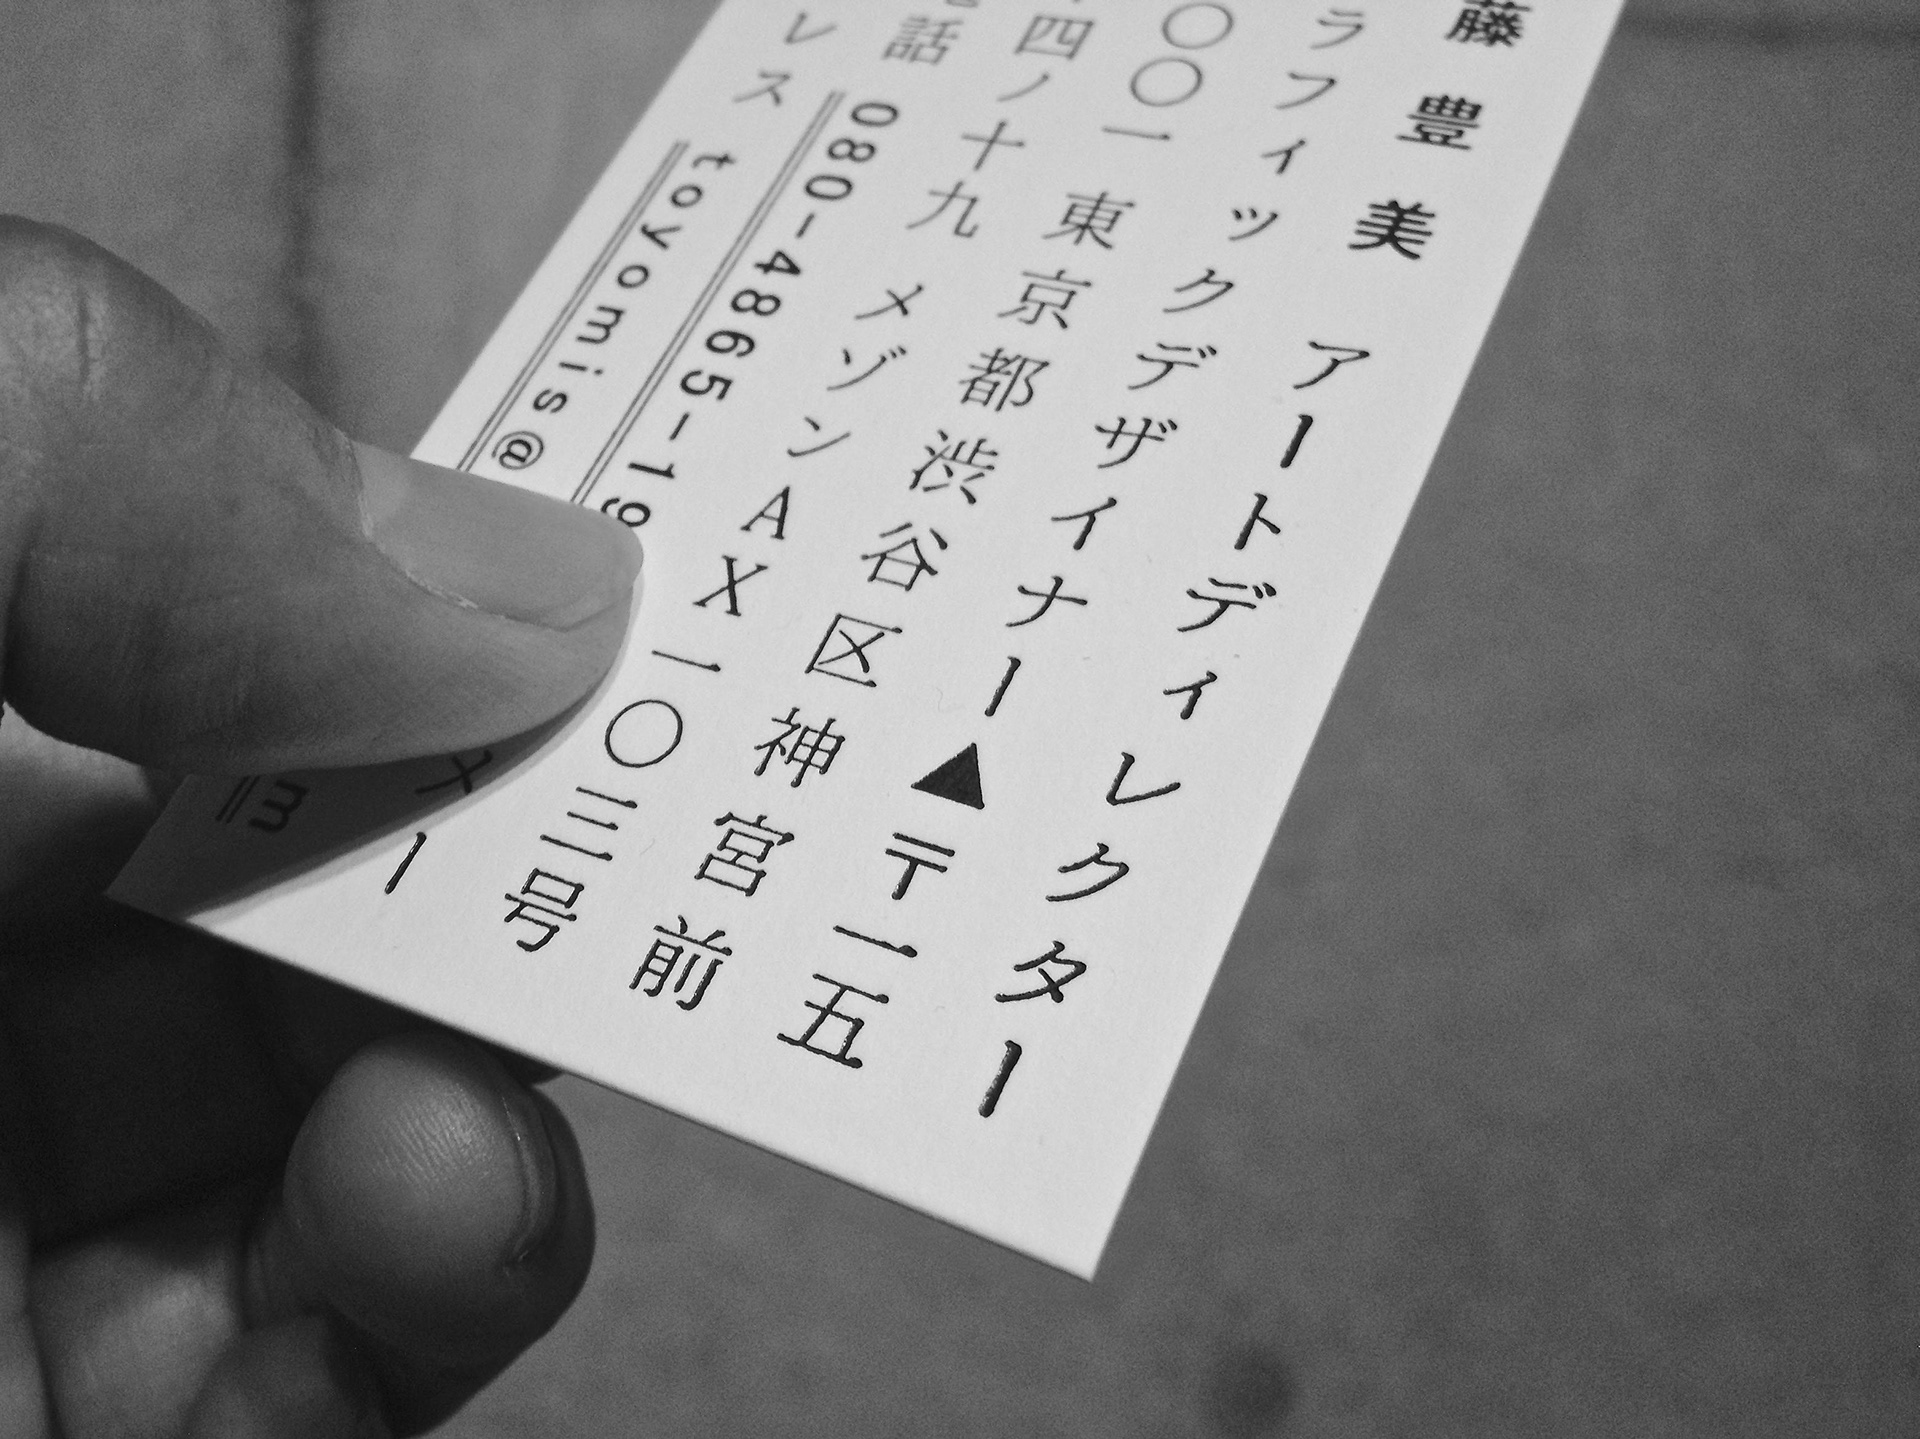 藤豊美 アートディレクター
ラフィックデザイナー▲〒一五
〇〇一 東京都渋谷区神宮前
四ノ十九 メゾンAX一〇三号
話 080-4865-19 メー
レス toyomis@ m